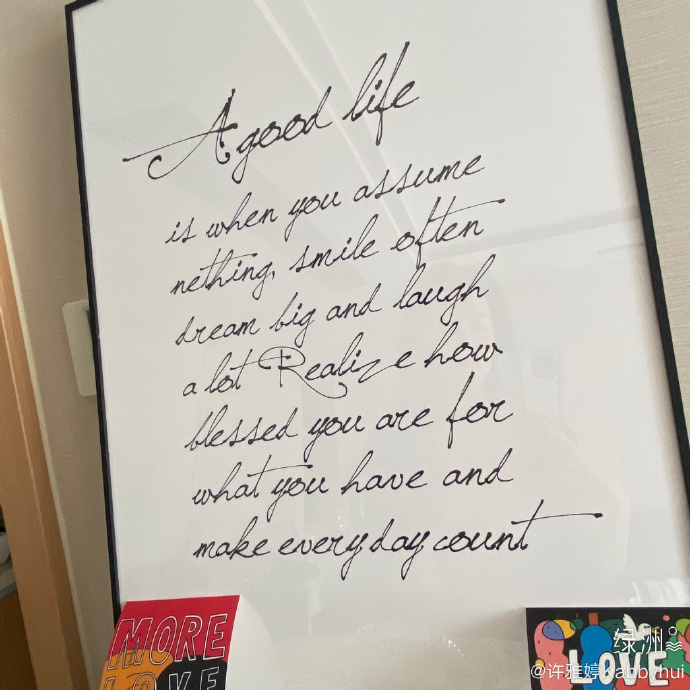 A good life
is when you assume
nething, smile often
dream big and laugh
a lot Realize how
blessed you are for
what you have and
make everyday count
MORE
LOVE
LOVE
绿洲
@许雅婷Kabbyhui